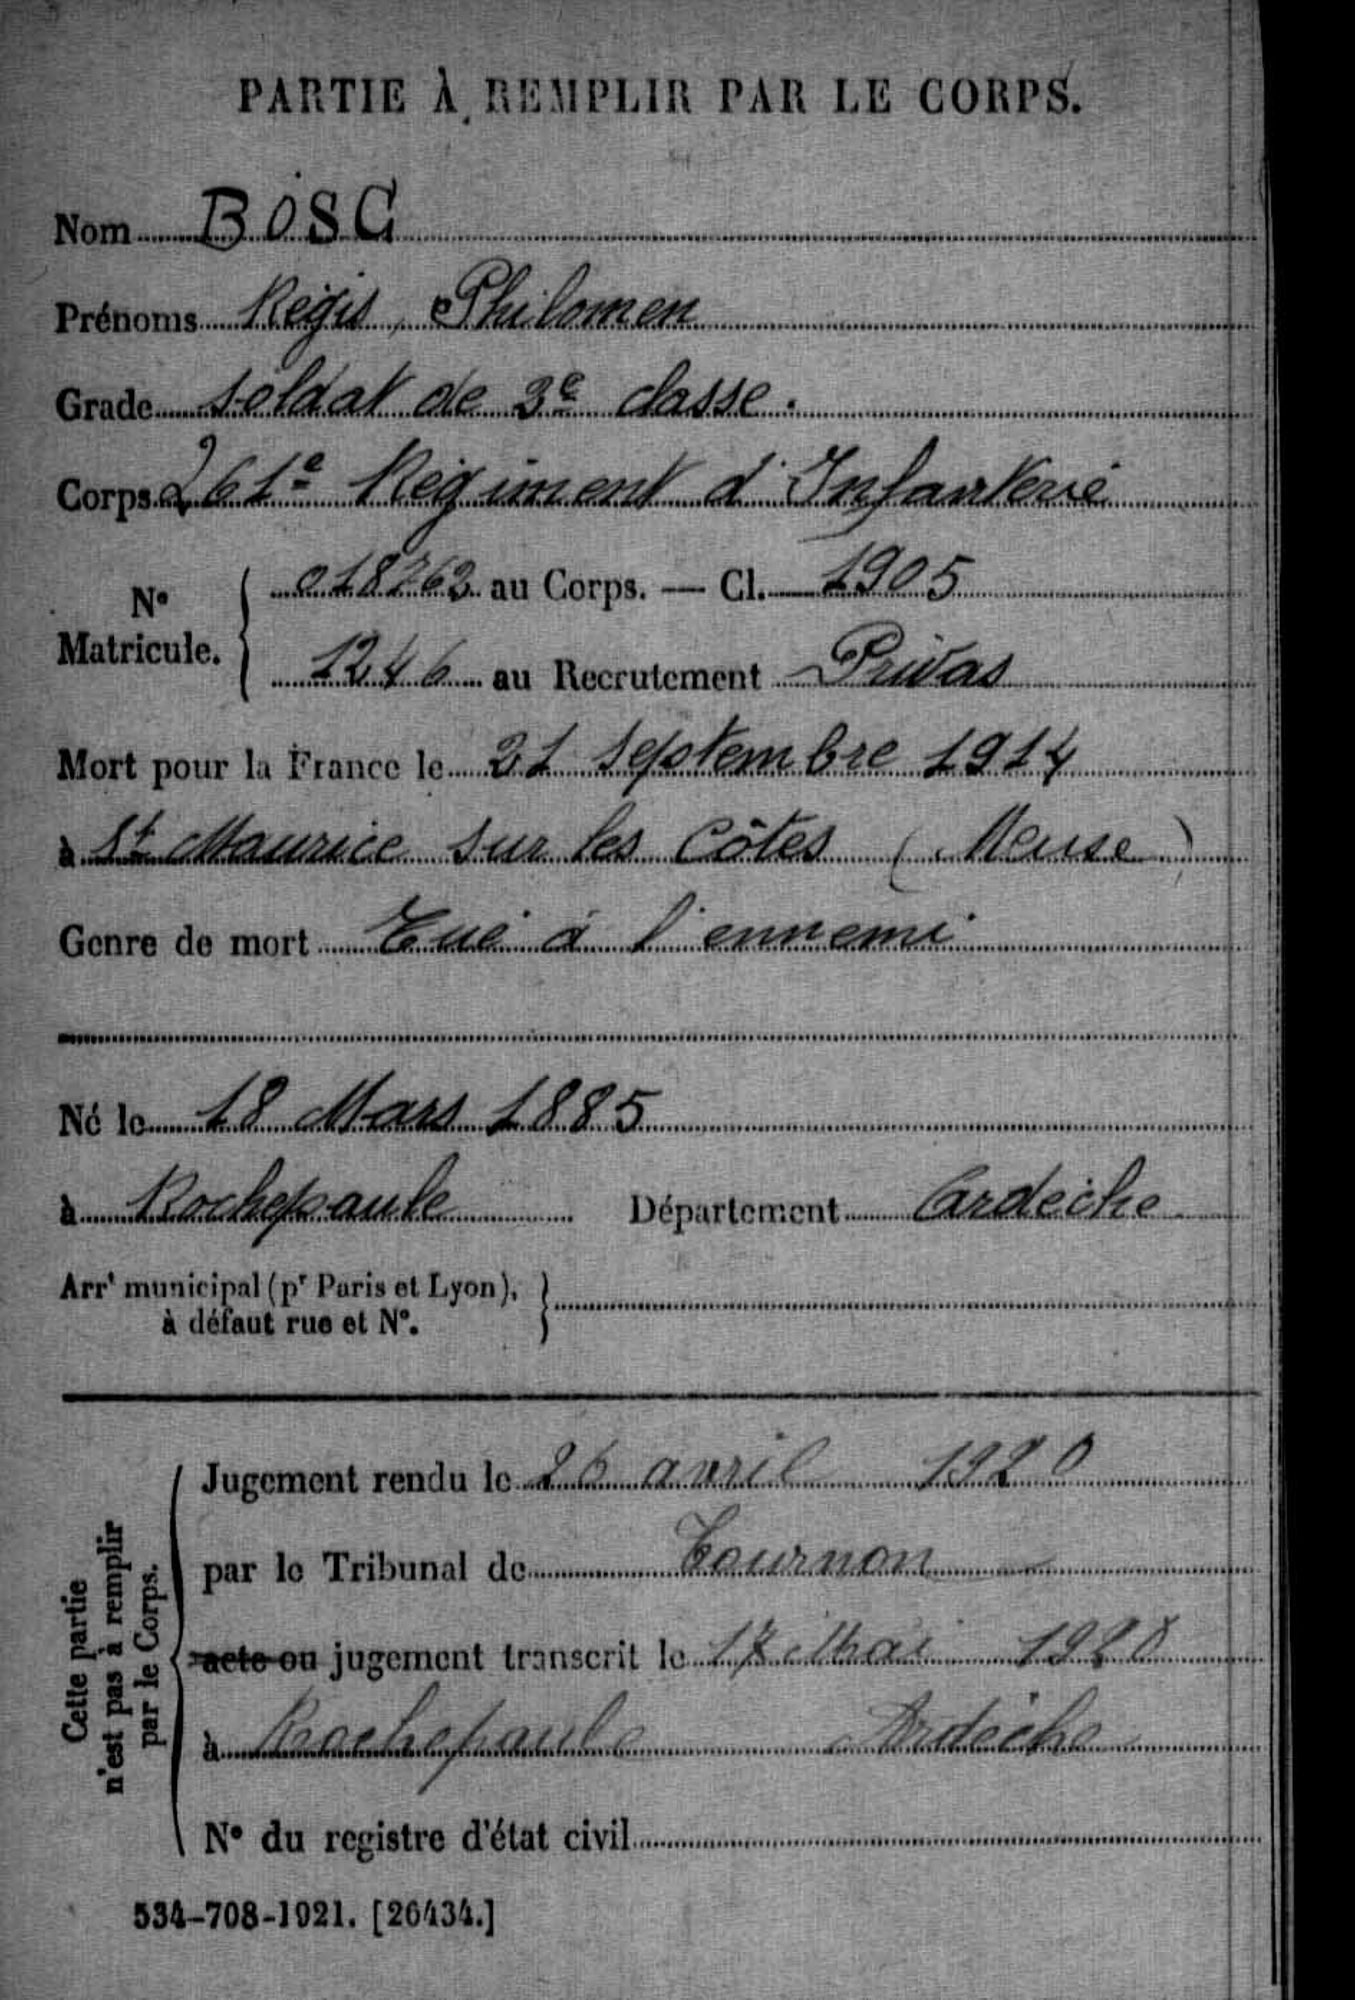 PARTIE À REMPLIR PAR LE CORPS.
Nom BOSC
Prénoms Régis, Philomen
Grade soldat de 2e classe.
Corps 261e Régiment d'Infanterie
N° Matricule. 018763 au Corps. — Cl. 1905
1246 au Recrutement Privas
Mort pour la France le 21 septembre 1914
à St Maurice sur les Côtes (Meuse)
Genre de mort Tué à l'ennemi
Né le 18 Mars 1885
à Rochepaule Département Ardèche
Arrt municipal (pr Paris et Lyon),
à défaut rue et N°.
Cette partie
n'est pas à remplir
par le Corps.
Jugement rendu le 26 avril 1920
par le Tribunal de Tournon
acte ou jugement transcrit le 17 Mai 1920
à Rochepaule Ardèche
N° du registre d'état civil
534-708-1921. [26434.]